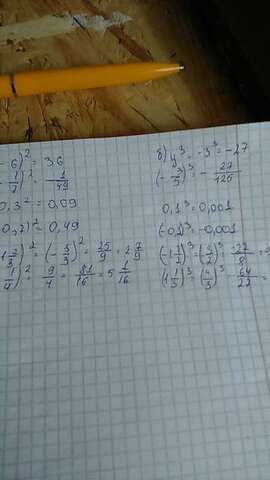 - 6)² = 36
- 1/7)² = 1/49
0,3² = 0,09
0,7)² = 0,49
1 2/3)² = (- 5/3)² = 25/9 = 2 7/9
1/4)² = 9/4 = 81/16 = 5 1/16
б) y³ = -3³ = -27
(- 3/5)³ = - 27/125
0,1³ = 0,001
(-0,1)³ = -0,001
(-1 1/2)³ = (3/2)³ = -27/8 =
(1 1/3)³ = (4/3)³ = 64/22 =